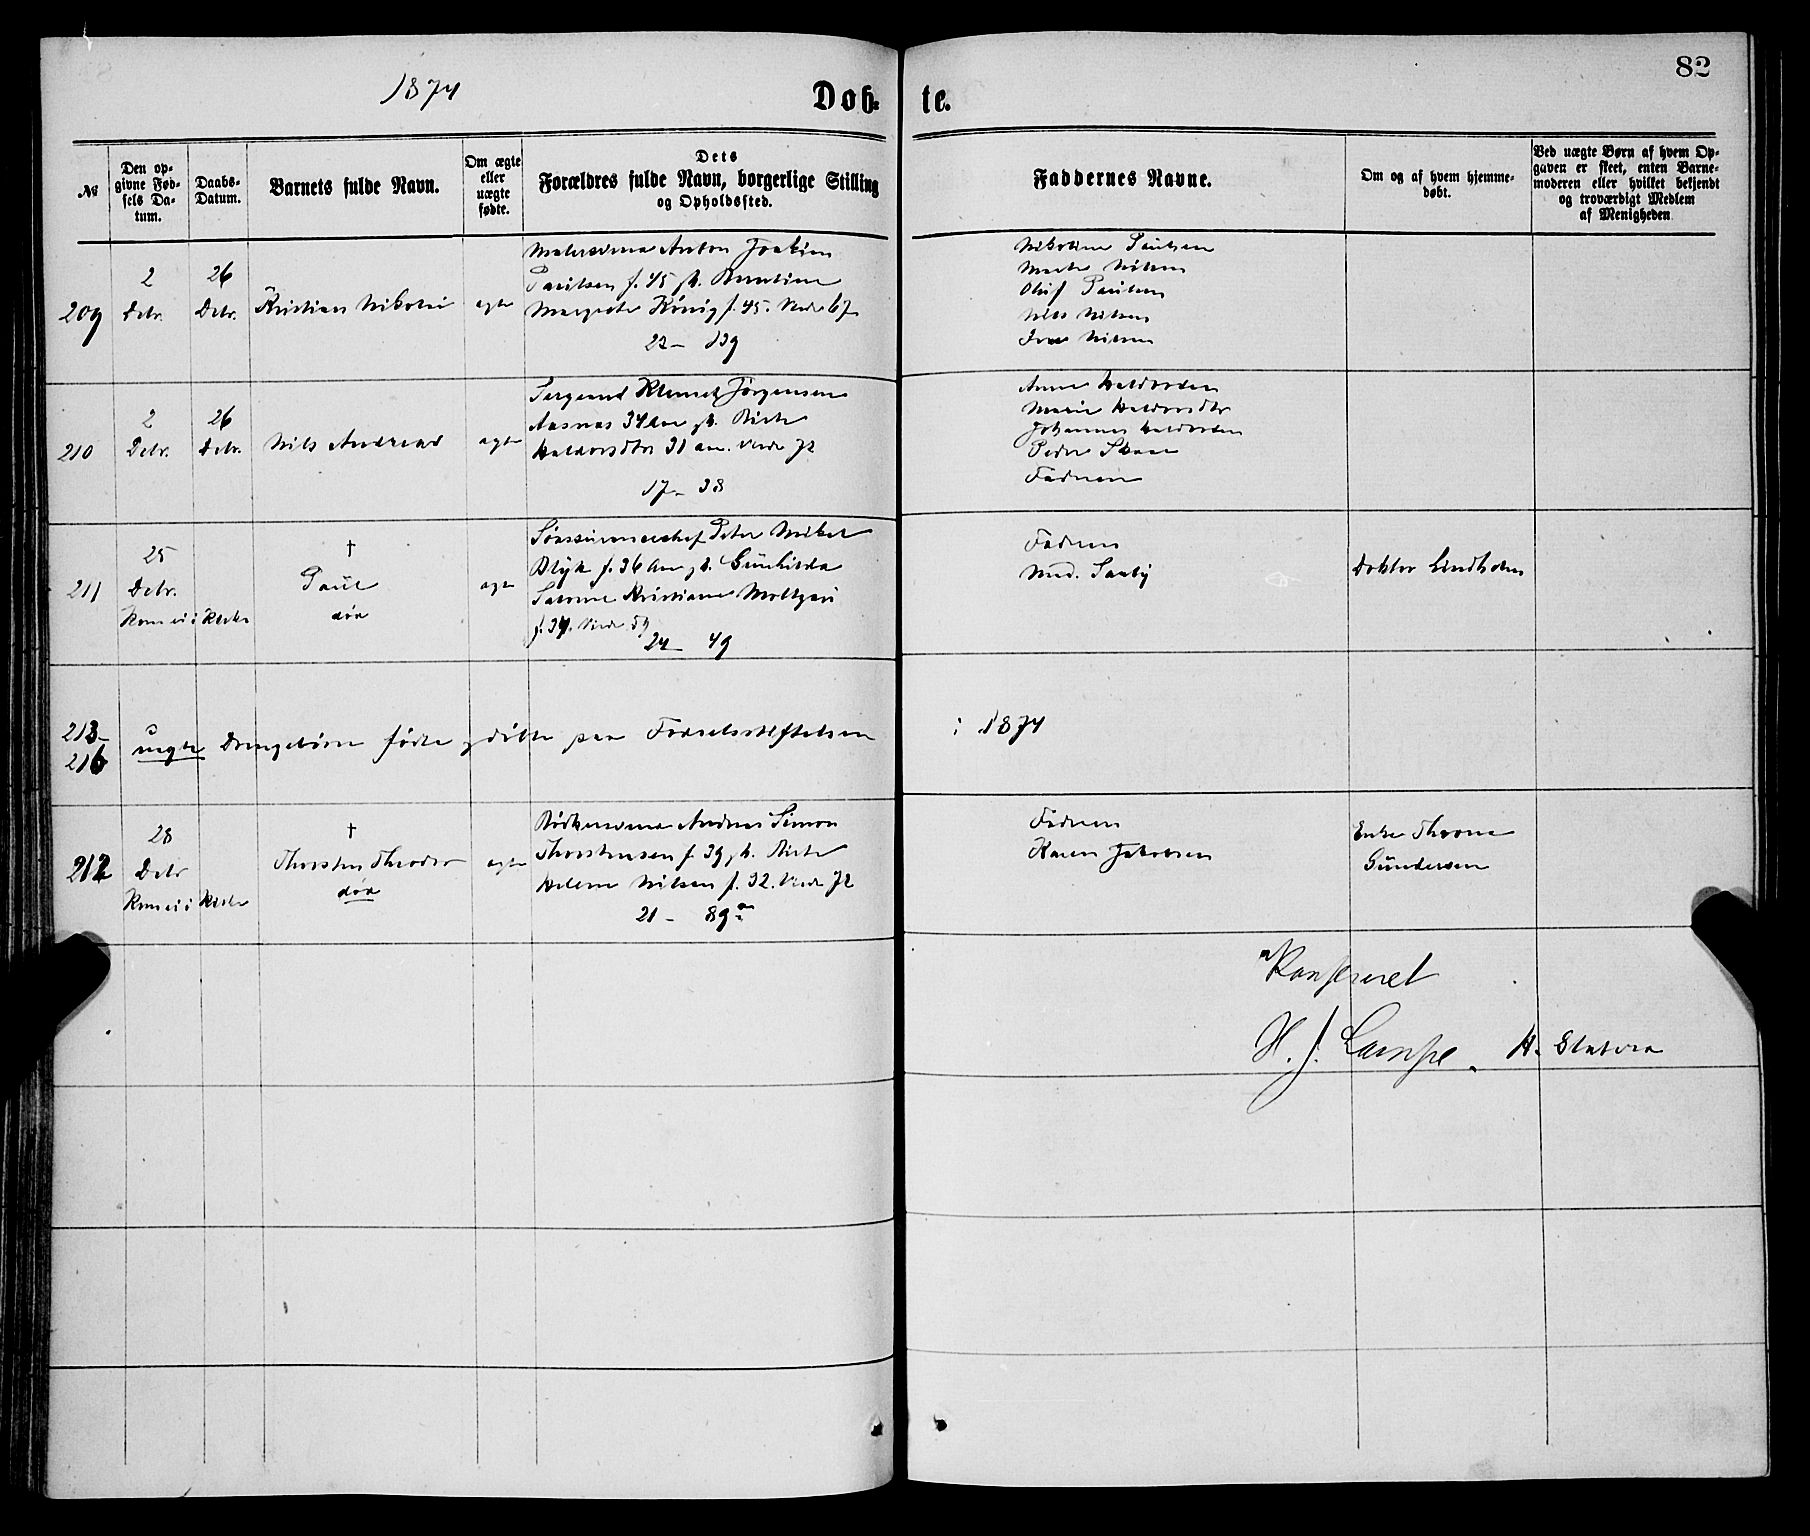 82
1874
Døb-te.
№
Den op-
givne Fød-
sels Da-
tum.
Daabs-
Datum.
Barnets fulde Navn.
Om ægte
eller
uægte
fødte.
Dets
Forældres fulde Navn, borgerlige Stilling
og Opholdssted.
Faddernes Navne.
Om og af hvem hjemme-
døbt.
Ved uægte Børn af hvem Op-
gaven er skeet, enten Barne-
moderen eller hvilket bekjendt
og troværdigt Medlem
af Menigheden
209
2
Debr.
26
Debr.
Kristian Nikolai
ægte
Malersvend Anton Joakim
Paulsen f. 45 &
Margrethe König f. 45. Viede 67
22 - 139
Nikoline Paulsen
Marte Nilsen
Oluf Paulsen
Nils Nilsen
Nilsen
210
2
Debr.
26
Debr.
Nils Andreas
ægte
Sergeant Klemet Jørgensen
Aasnas 34 Aar &
Haldorsdtr 31 Aar. Viede 72
17 - 38
Anne Haldorsen
Marie Haldorsdtr
Johannes Haldorsen
Peder
Faderen
211
25
Debr.
Kom ei i Kirke
†
Paul
død
ægte
Peter
Blijk f. 36 Gunhilda
Kristiane
f. 34. Viede 59
24 - 49
Faderen
Mad. Saxby
Doktor Lindholm
213-
216
uægte Drengebørn fødte & døbte paa Fødselsstiftelsen
i 1874
212
28
Debr
Kom ei i Kirke
†
Thorsten Theodor
død
ægte
Bødkersvend Andreas Simon
Thorstensen f. 39
Helene Nilsen f. 32. Viede 72
21 - 89 a
Faderen
Karen Jakobsen
Enke Thrane
Gundersen
Konfereret
H. J. Lampe. H.